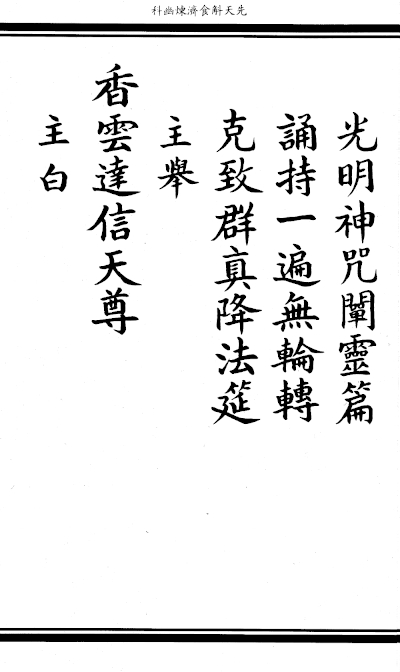 先天斛食濟煉幽科
光明神咒闡靈篇
誦持一遍無輪轉
克致群真降法筵
主舉
香雲達信天尊
主白